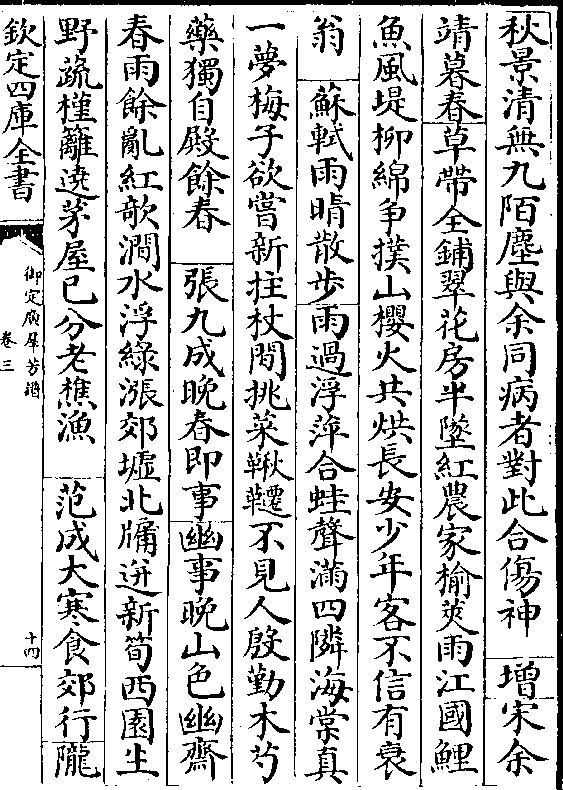 秋景清無九陌塵與余同病者對此合傷神　增宋余
靖暮春草帶全鋪翠花房半墜紅農家榆莢雨江國鯉
魚風堤柳綿争撲山櫻火共烘長安少年客不信有衰
翁　蘇軾雨晴散步雨過浮萍合蛙聲滿四隣海棠真
一夢梅子欲嘗新拄杖閒挑菜鞦韆不見人殷勤木芍
藥獨自殿餘春　張九成晚春即事幽事晚山色幽齋
春雨餘亂紅欹澗水浮綠漲郊墟北牖迸新筍西園生
野蔬槿籬遶茅屋已分老樵漁　范成大寒食郊行隴
欽定四庫全書
御定廣羣芳譜
卷三
十四